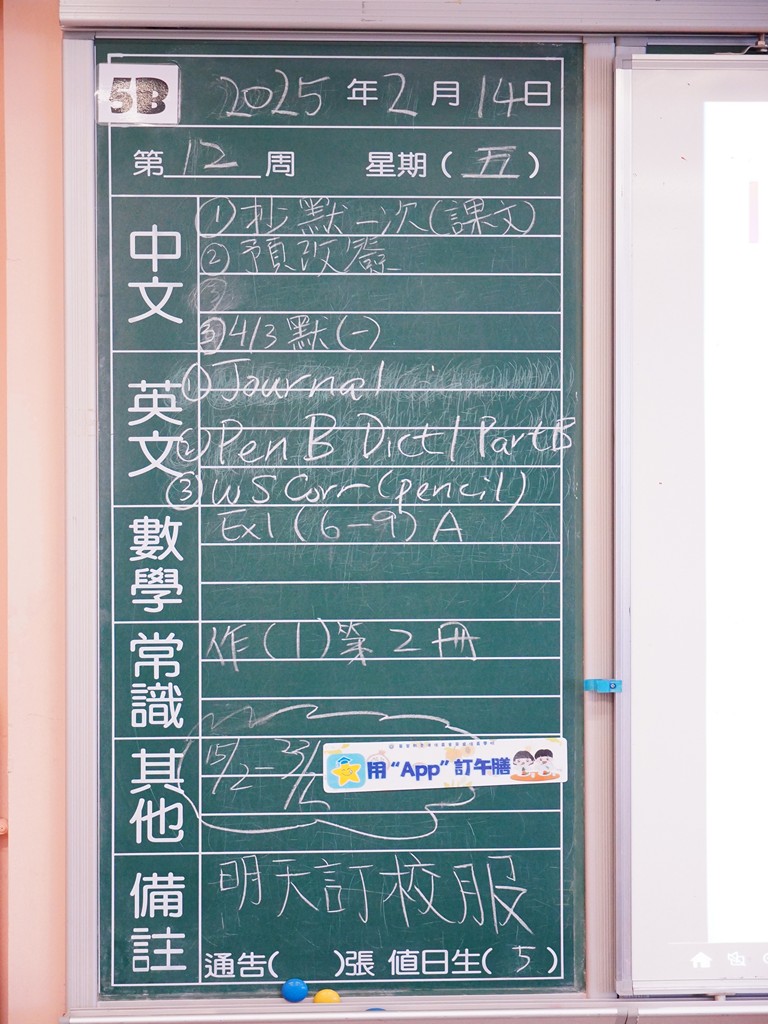 5B 2025年2月14日
第12周 星期(五)
中文
①抄默一次(課文)
②預改簽
③
③4/3默(一)
英文
①Journal
②Pen B Dict 1 Part B
③WS Corr (pencil)
數學
Ex1 (6-9) A
常識
作(1)第2冊
其他
15/2-23/2
用“App”訂午膳
備註
明天訂校服
通告( )張 值日生(5)